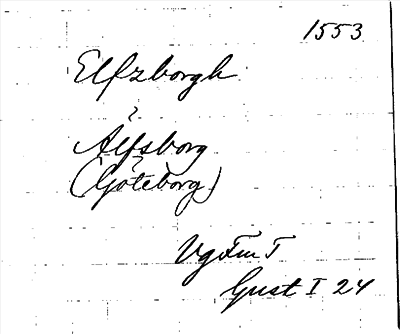 1553
Elfzborgh
Älfsborg
(Göteborg)
VgFmT
Gust I 24